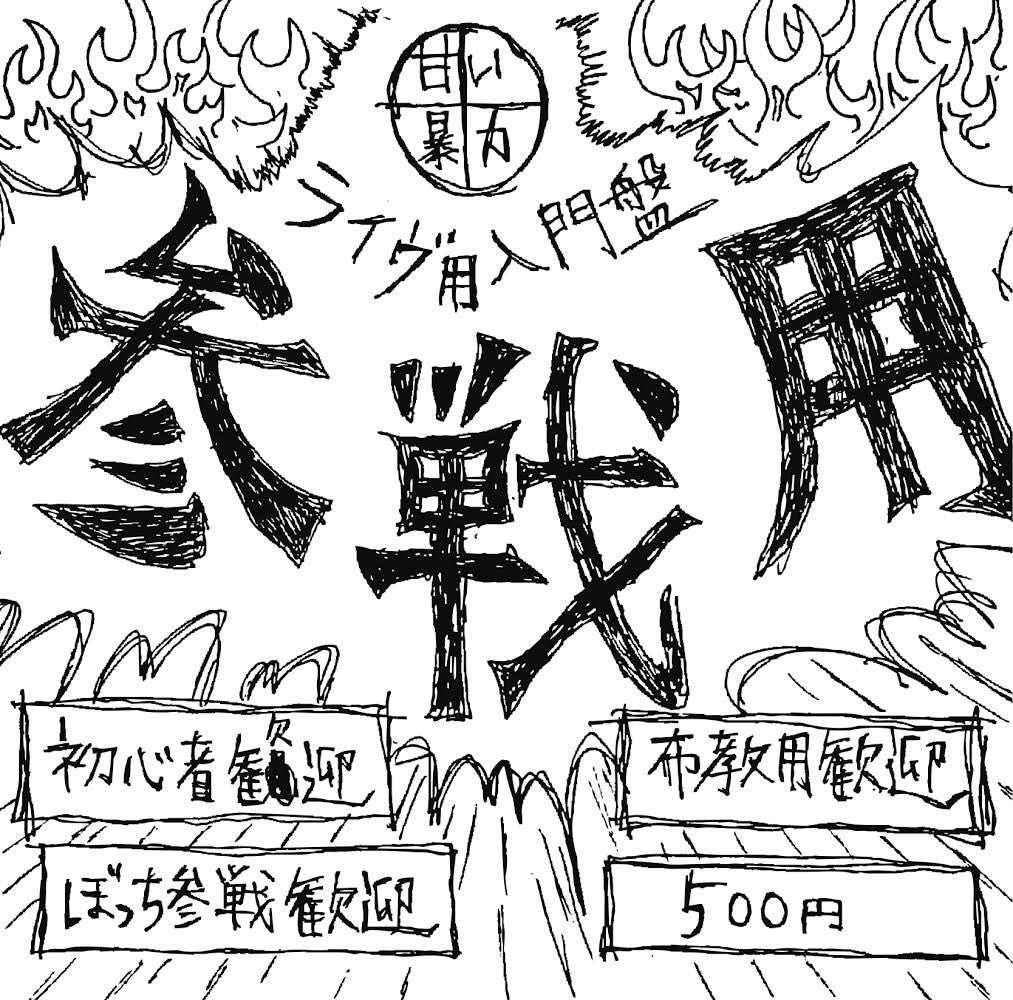 甘い
暴力
ライヴ用入門盤
参戦用
初心者歓迎
布教用歓迎
ぼっち参戦歓迎
500円